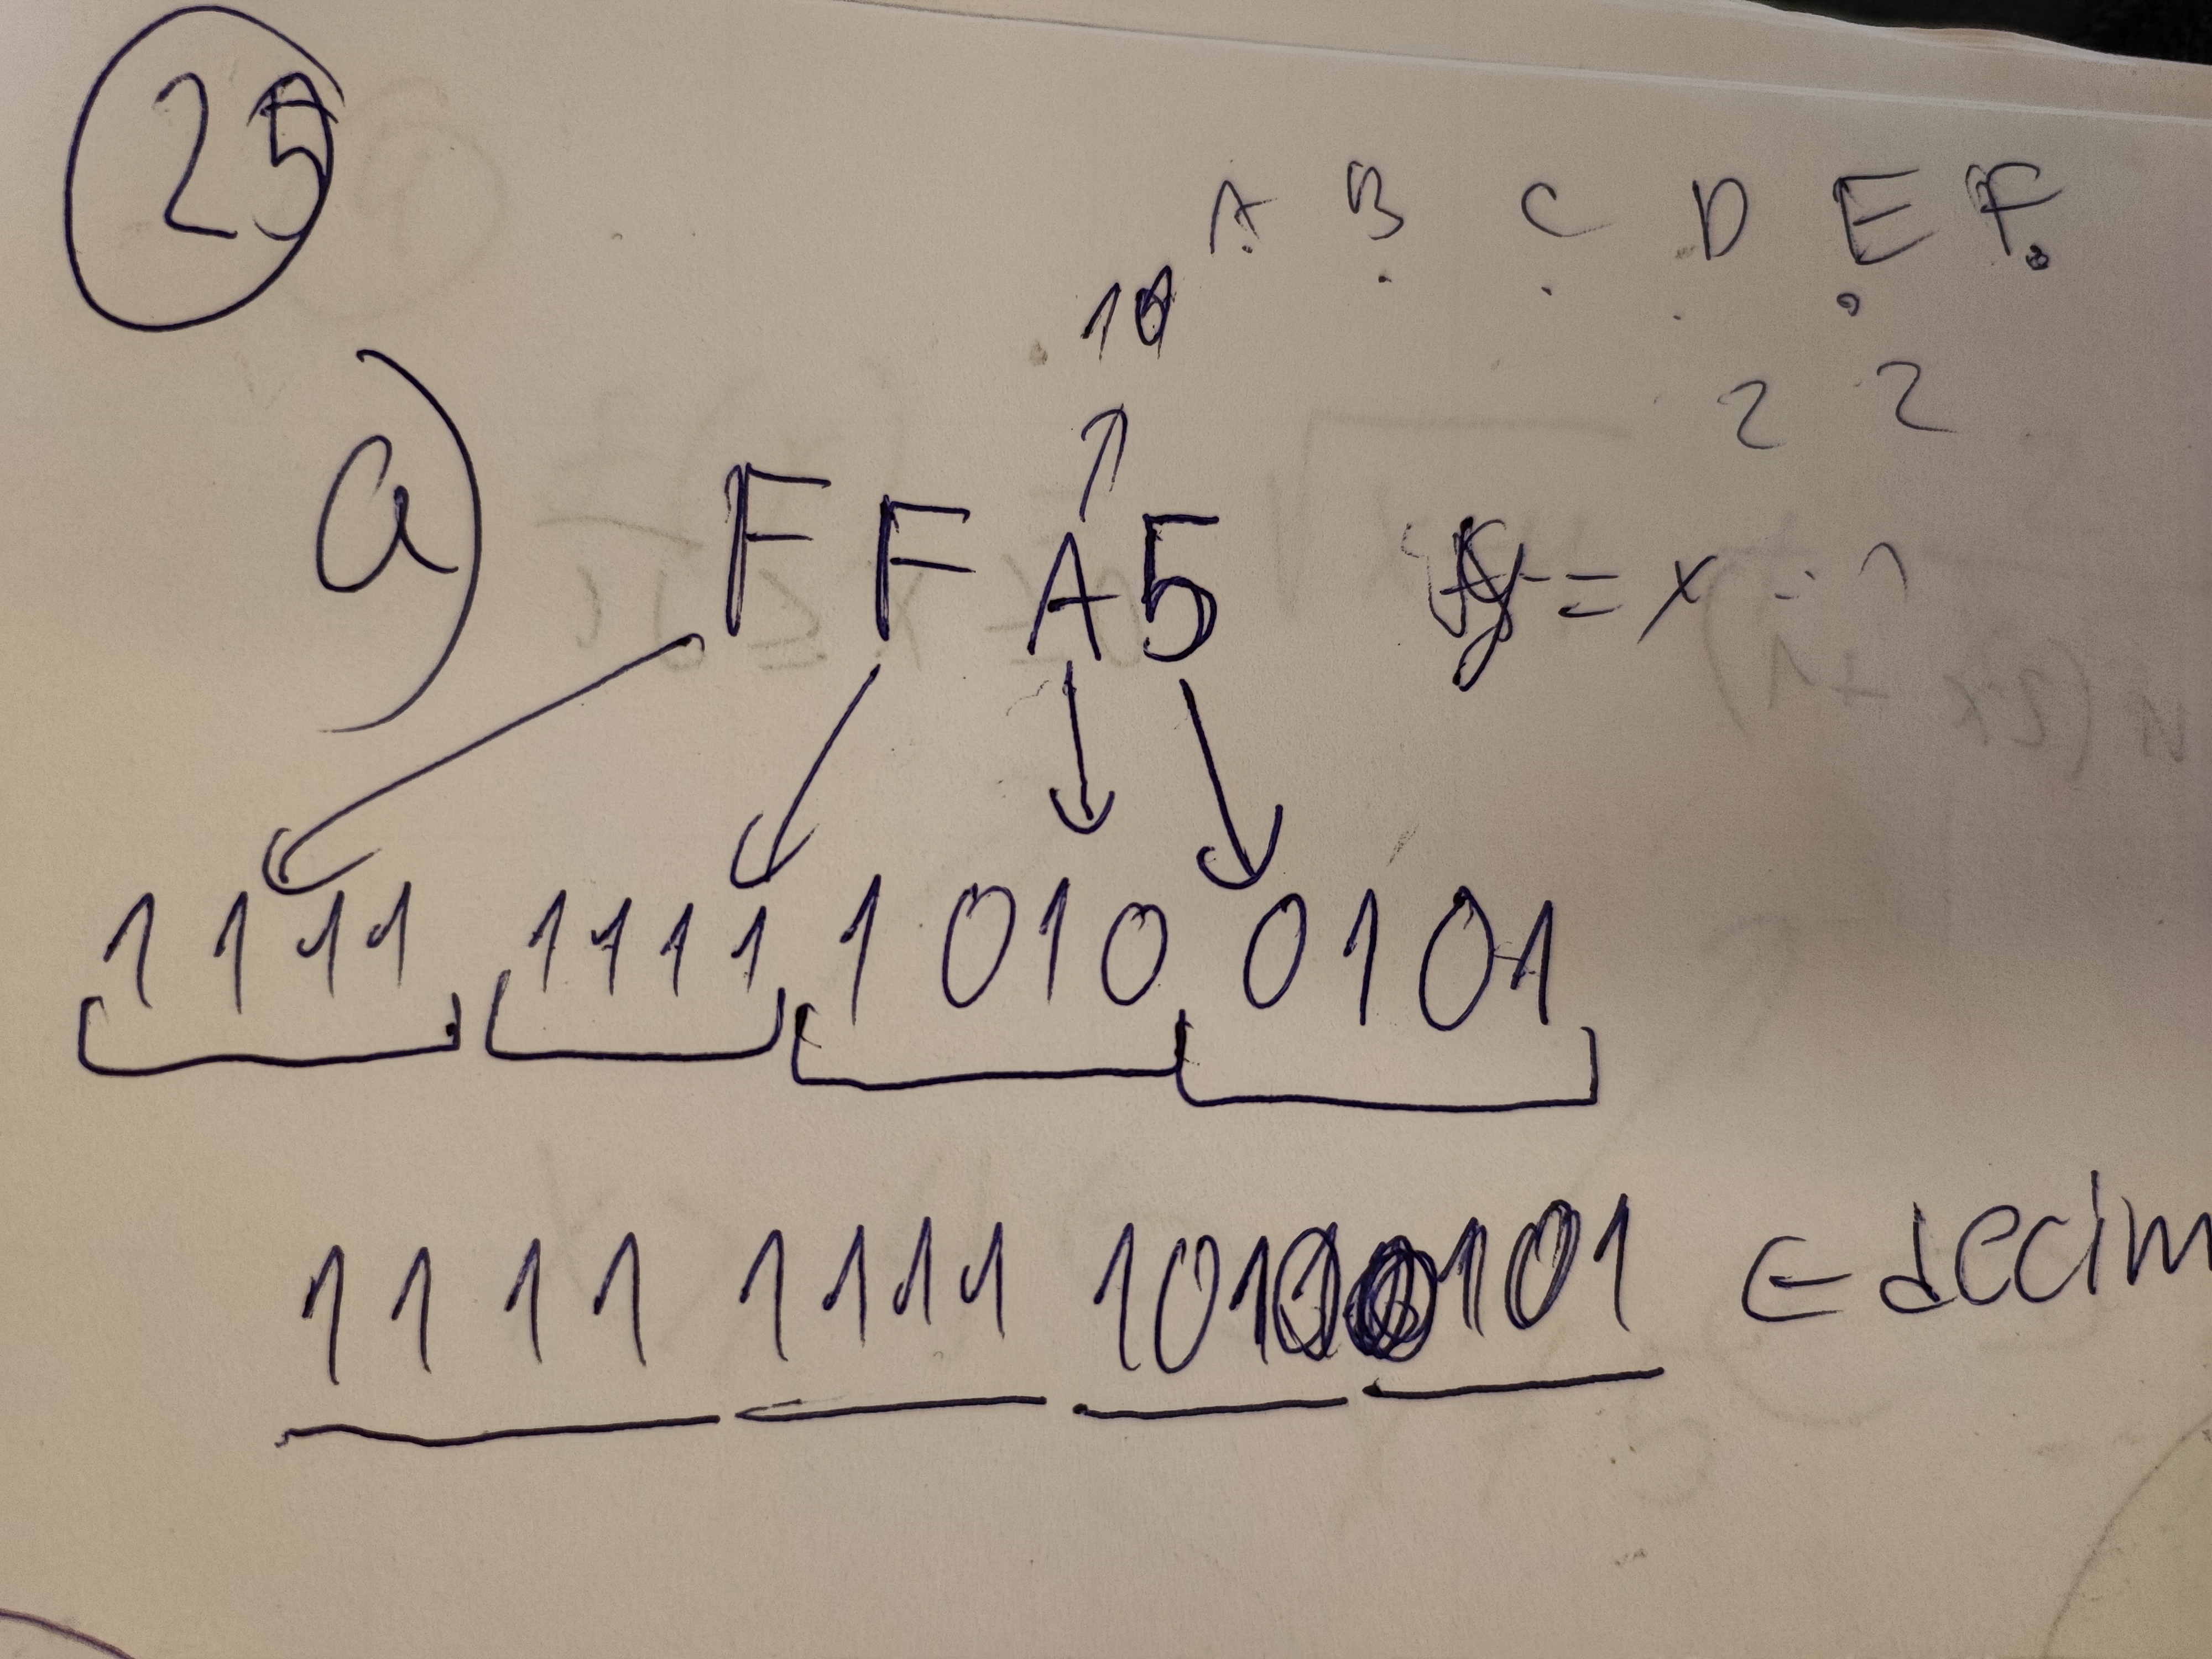 25
A B C D E F
10
2 2
a) F F A 5 y = x
1 1 1 1 1 1 1 1 1 0 1 0 0 1 0 1
1 1 1 1 1 1 1 1 1 0 1 0 0 1 0 1 ∈ decim